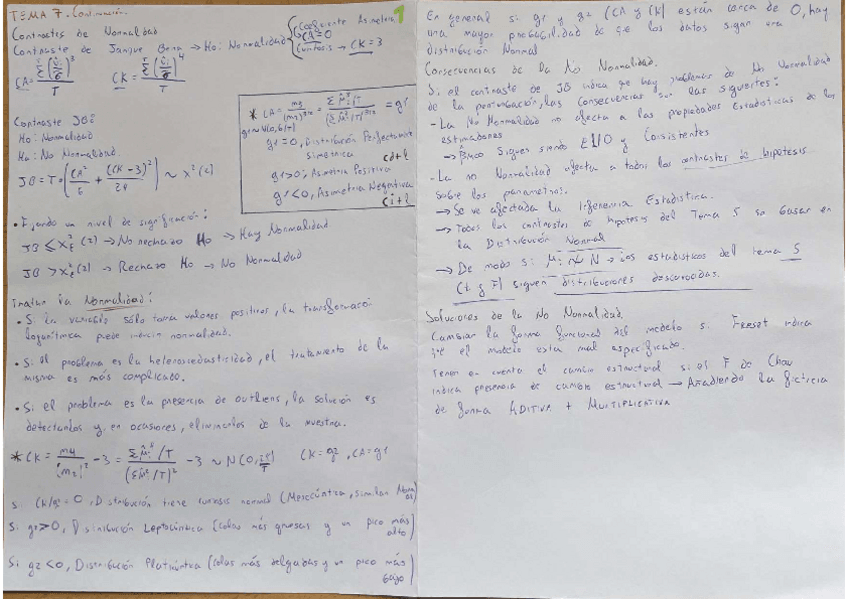 TEMA 7. Continuación
1
Contrastes de Normalidad
Contraste de Jarque Bera → Ho: Normalidad
Coeficiente Asimetría
CA = 0
Curtosis → CK = 3
CA = Σ(û/σ̂)³ / T
CK = Σ(û/σ̂)⁴ / T
Contraste JB:
Ho: Normalidad
Ha: No Normalidad.
JB = T · (CA²/6 + (CK - 3)²/24) ~ χ²(2)
* CA = m3/(m2)^3/2 = Σ û³/T / (Σ û²/T)^3/2 = g1
g1 ~ N(0, 6/T)
g1 = 0, Distribución Perfectamente
Simétrica
g1 > 0, Asimetría Positiva
g1 < 0, Asimetría Negativa
• Fijando un nivel de significación:
JB ≤ χ²ε (2) → No rechazo Ho → Hay Normalidad
JB > χ²ε (2) → Rechazo Ho → No Normalidad
Tratar la Normalidad:
• Si la variable sólo toma valores positivos, la transformación
logarítmica puede inducir normalidad.
• Si el problema es la heteroscedasticidad, el tratamiento de la
misma es más complicado.
• Si el problema es la presencia de outliers, la solución es
detectarlos y, en ocasiones, eliminarlos de la muestra.
* CK = m4/(m2)² - 3 = Σ û⁴/T / (Σ û²/T)² - 3 ~ N(0, 24/T) CK = g2, CA = g1
Si CK/g2 = 0, Distribución tiene curtosis normal (Mesocúrtica, similar
Si g2 > 0, Distribución Leptocúrtica (colas más gruesas y un pico más
alto)
Si g2 < 0, Distribución Platicúrtica (colas más delgadas y un pico más
bajo)
En general si g1 y g2 (CA y CK) están cerca de 0, hay
una mayor probabilidad de que los datos sigan una
distribución Normal
Consecuencias de la No Normalidad.
Si el contraste de JB indica que hay problemas de No Normalidad
de la perturbación, las consecuencias son las siguientes:
- La No Normalidad no afecta a las propiedades Estadísticas de los
estimadores
→ siguen siendo ELIO y Consistentes
- La no Normalidad afecta a todos los contrastes de hipótesis
sobre los parámetros:
→ Se ve afectada la Inferencia Estadística.
→ Todos los contrastes de hipótesis del Tema 5 se basan en
la Distribución Normal
→ De modo si û ≁ N → los estadísticos del tema 5
(t y F) siguen distribuciones desconocidas.
Soluciones de la No Normalidad.
Cambiar la forma funcional del modelo si Freset indica
que el modelo está mal especificado.
Tener en cuenta el cambio estructural si el F de Chow
indica presencia de cambio estructural → Añadiendo la ficticia
de forma ADITIVA + MULTIPLICATIVA